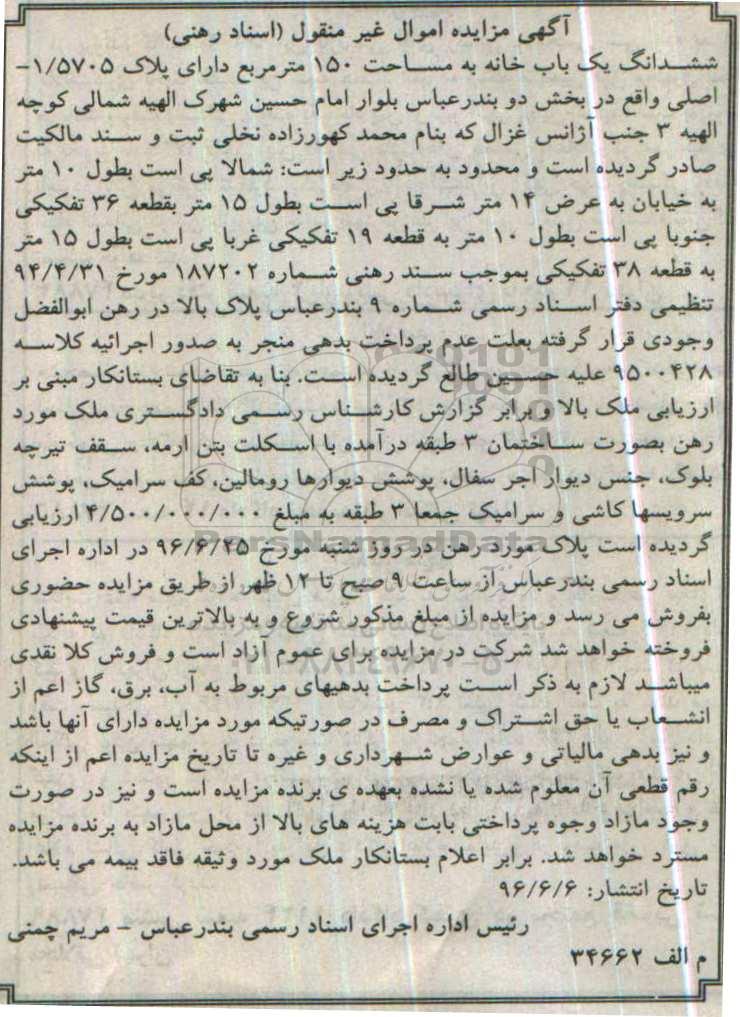 آگهی مزایده اموال غیر منقول (اسناد رهنی)
ششدانگ یک باب خانه به مساحت ۱۵۰ مترمربع دارای پلاک ۱/۵۷۰۵-
اصلی واقع در بخش دو بندرعباس بلوار امام حسین شهرک الهیه شمالی کوچه
الهیه ۳ جنب آژانس غزال که بنام محمد کهورزاده نخلی ثبت و سند مالکیت
صادر گردیده است و محدود به حدود زیر است: شمالا پی است بطول ۱۰ متر
به خیابان به عرض ۱۴ متر شرقا پی است بطول ۱۵ متر بقطعه ۳۶ تفکیکی
جنوبا پی است بطول ۱۰ متر به قطعه ۱۹ تفکیکی غربا پی است بطول ۱۵ متر
به قطعه ۳۸ تفکیکی بموجب سند رهنی شماره ۱۸۷۲۰۲ مورخ ۹۴/۴/۳۱
تنظیمی دفتر اسناد رسمی شماره ۹ بندرعباس پلاک بالا در رهن ابوالفضل
وجودی قرار گرفته بعلت عدم پرداخت بدهی منجر به صدور اجرائیه کلاسه
۹۵۰۰۴۲۸ علیه حسین طالع گردیده است. بنا به تقاضای بستانکار مبنی بر
ارزیابی ملک بالا و برابر گزارش کارشناس رسمی دادگستری ملک مورد
رهن بصورت ساختمان ۳ طبقه درآمده با اسکلت بتن ارمه، سقف تیرچه
بلوک، جنس دیوار اجر سفال، پوشش دیوارها رومالین، کف سرامیک، پوشش
سرویسها کاشی و سرامیک جمعا ۳ طبقه به مبلغ ۴/۵۰۰/۰۰۰/۰۰۰ ارزیابی
گردیده است پلاک مورد رهن در روز شنبه مورخ ۹۶/۶/۲۵ در اداره اجرای
اسناد رسمی بندرعباس از ساعت ۹ صبح تا ۱۲ ظهر از طریق مزایده حضوری
بفروش می رسد و مزایده از مبلغ مذکور شروع و به بالاترین قیمت پیشنهادی
فروخته خواهد شد شرکت در مزایده برای عموم آزاد است و فروش کلا نقدی
میباشد لازم به ذکر است پرداخت بدهیهای مربوط به آب، برق، گاز اعم از
انشعاب یا حق اشتراک و مصرف در صورتیکه مورد مزایده دارای آنها باشد
و نیز بدهی مالیاتی و عوارض شهرداری و غیره تا تاریخ مزایده اعم از اینکه
رقم قطعی آن معلوم شده یا نشده بعهده ی برنده مزایده است و نیز در صورت
وجود مازاد وجوه پرداختی بابت هزینه های بالا از محل مازاد به برنده مزایده
مسترد خواهد شد. برابر اعلام بستانکار ملک مورد وثیقه فاقد بیمه می باشد.
تاریخ انتشار: ۹۶/۶/۶
رئیس اداره اجرای اسناد رسمی بندرعباس - مریم چمنی
م الف ۳۴۶۶۲
ParsNamadData